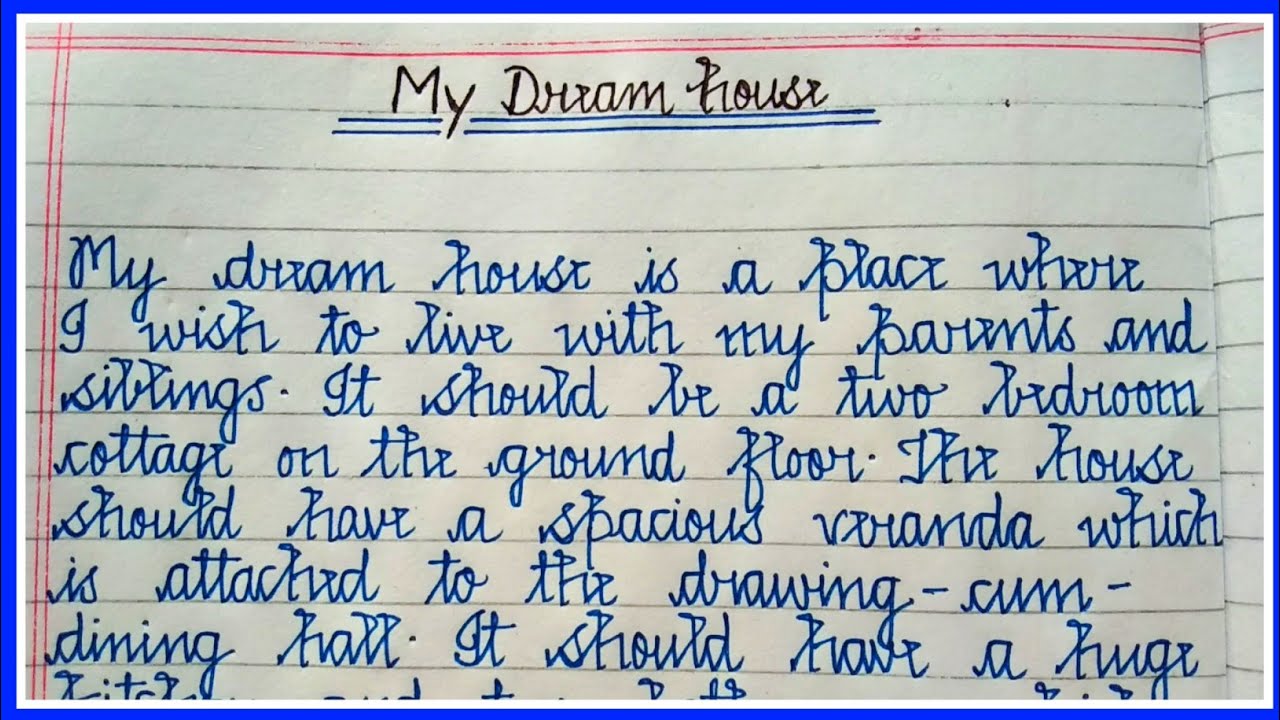 My Dream house
My dream house is a place where
I wish to live with my parents and
siblings. It should be a two bedroom
cottage on the ground floor. The house
should have a spacious veranda which
is attached to the drawing-cum-
dining hall. It should have a huge